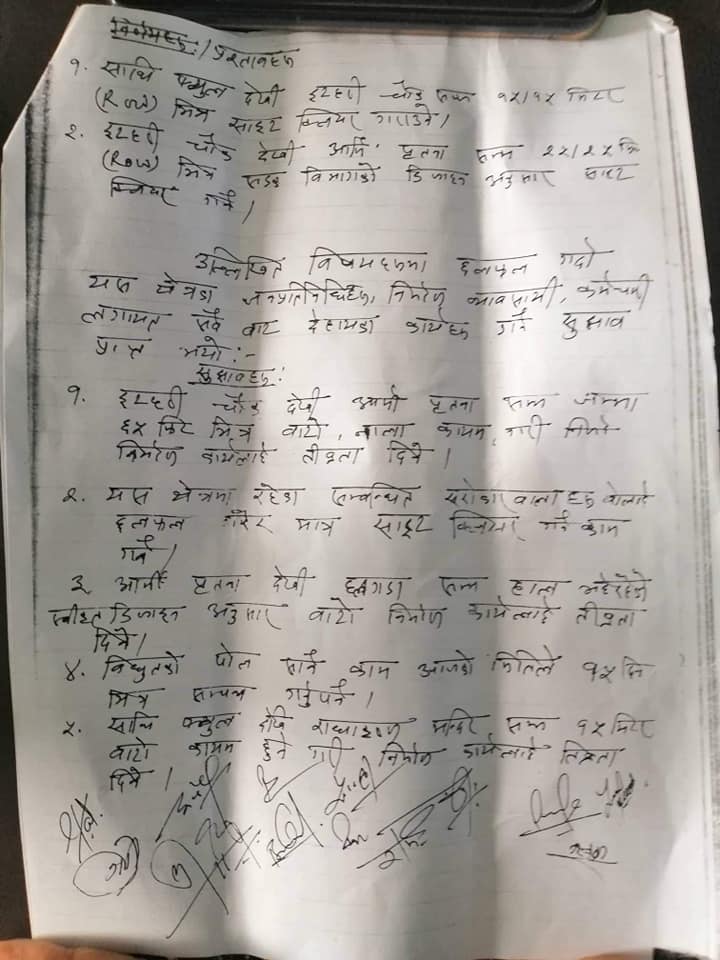 विषयहरु / प्रस्तावहरु
१. साथि स्कुल देखी इटहरी चौक सम्म १५/१५ मिटर
(Row) भित्र साइट क्लियर गराउने।
२. इटहरी चौक देखी आर्मी पृतना सम्म २५/२५ मि
(Row) भित्र सडक विभागको डिजाइन अनुसार साइट
क्लियर गर्ने।
उल्लिखित विषयहरुमा छलफल गर्दा
यस क्षेत्रका जनप्रतिनिधिहरु, निर्माण व्यावसायी, कर्मचारी
लगायत सबै बाट देहायका कार्यहरु गर्ने सुझाव
प्राप्त भयो:-
सुझावहरु:
१. इटहरी चौक देखी आर्मी पृतना सम्म जम्मा
मिटर भित्र बाटो, नाला कायम गरी
निर्माण कार्यलाई तीव्रता दिने।
२. यस क्षेत्रमा रहेका सम्बन्धित सरोकारवाला हरु
छलफल गरेर मात्र साइट क्लियर गर्ने काम
गर्ने।
३. आर्मी पृतना देखी सम्म हाल
स्वीकृत डिजाइन अनुसार बाटो निर्माण कार्यलाई तीव्रता
दिने।
४. विद्युतको पोल सार्ने काम आजको मितिले १५ दिन
भित्र सम्पन्न गर्नुपर्ने।
५. साथि स्कुल देखि राधाकृष्ण मन्दिर सम्म १५ मिटर
बाटो कायम हुने गरी निर्माण कार्यलाई तिव्रता
दिने।